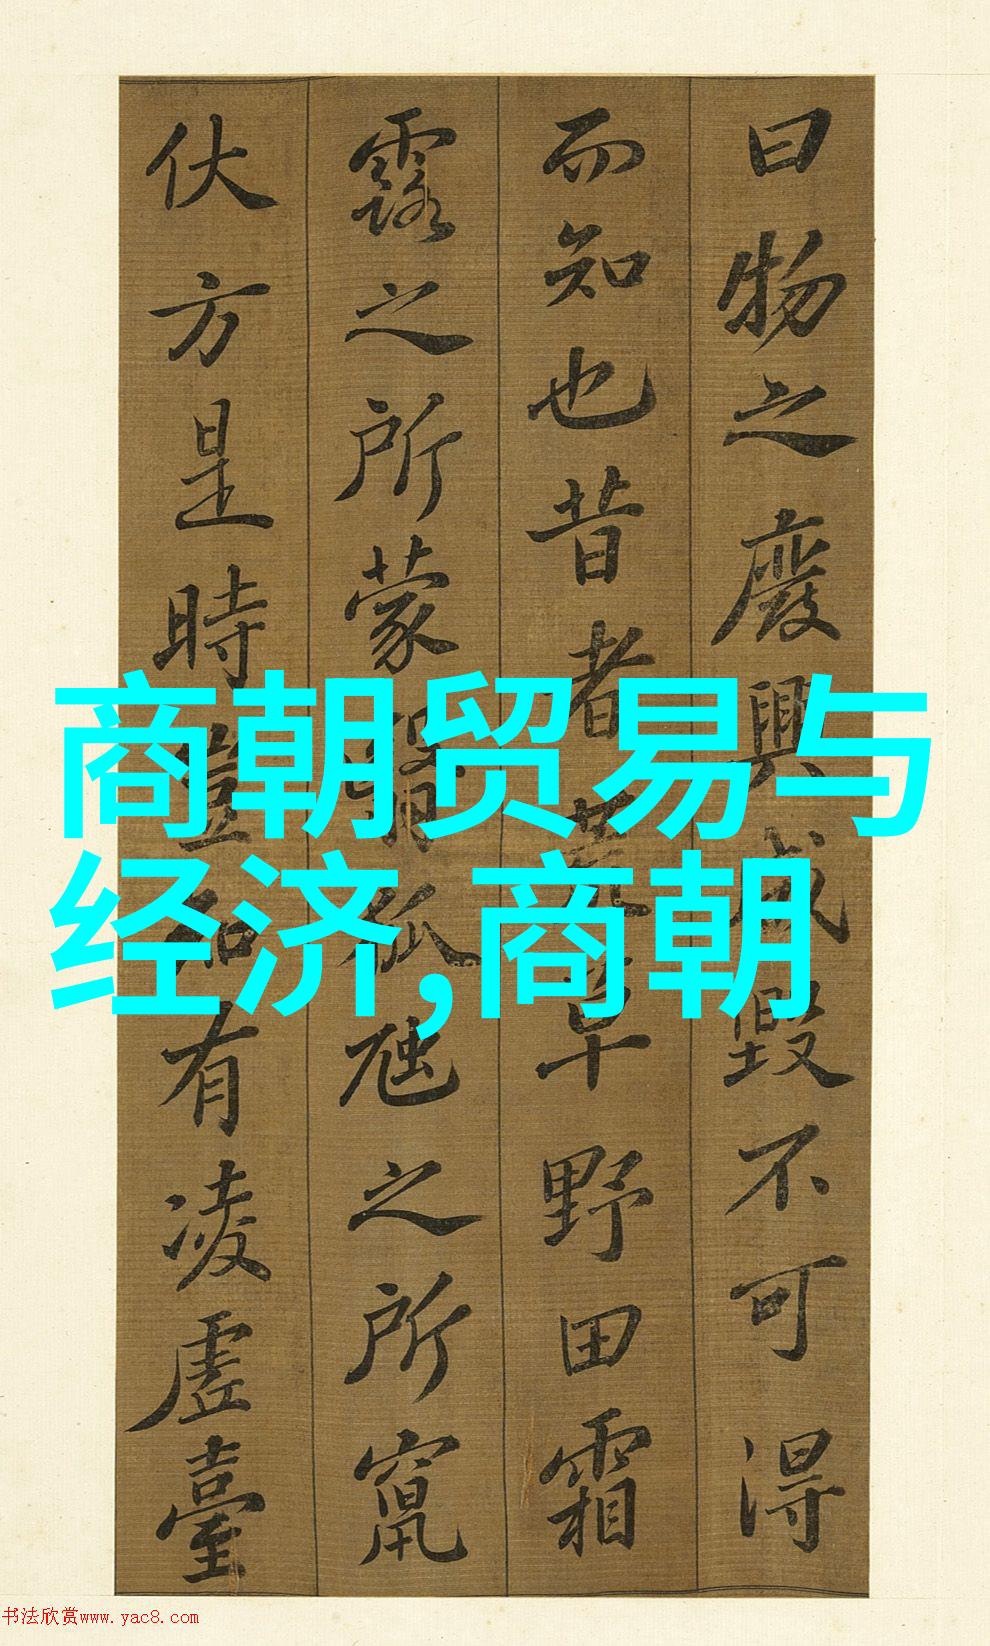 曰物之廢興成毀不可得
而知也昔者荒草野田霜
露之所蒙翳狐虺之所竄
伏方是時豈知有凌虛臺
商朝贸易与
经济,商朝
书法欣赏www.yac8.com